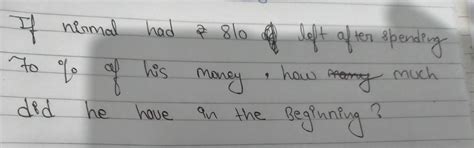 If nirmal had ₹ 810 left after spending
70 % of his money , how much
did he have in the Beginning ?